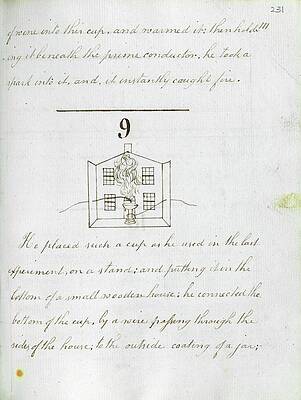 231
of wine into this cup, and warmed it: then hold=
ing it beneath the prime conductor, he took a
spark into it, and, it instantly caught fire.
9
He placed such a cup as he used in the last
experiment, on a stand: and putting it in the
bottom of a small wooden house; he connected the
bottom of the cup, by a wire passing through the
sides of the house; to the outside coating of a jar;